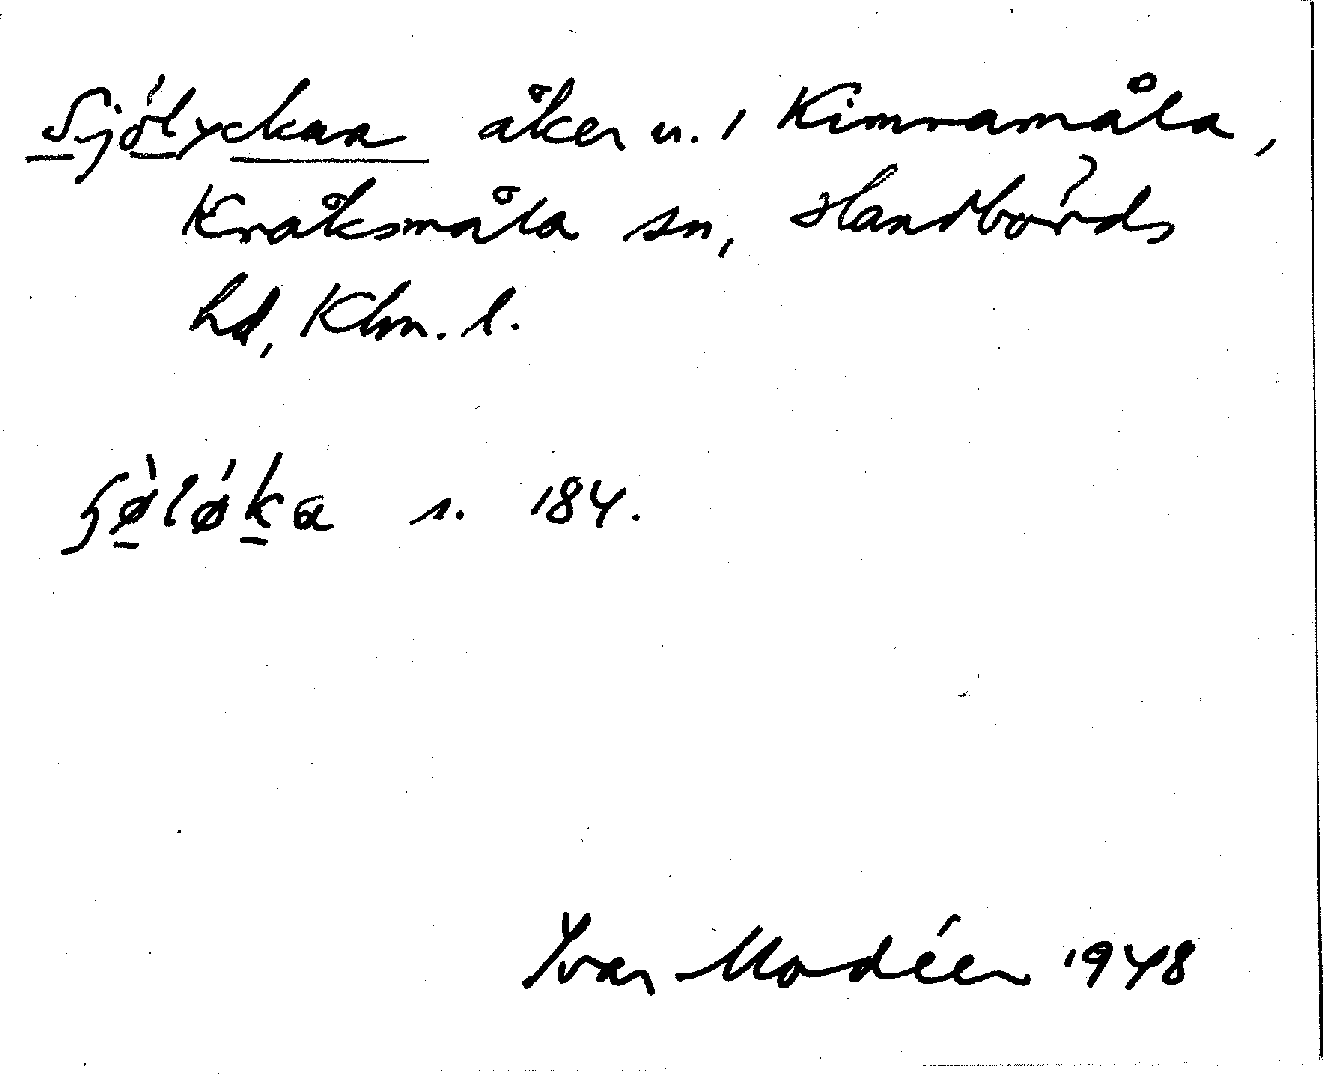 Sjölyckan åker u. / Kimramåla,
Kråksmåla sn, Handbörds
hd, Klm. l.
s. 184.
Yvar Modéer 1948